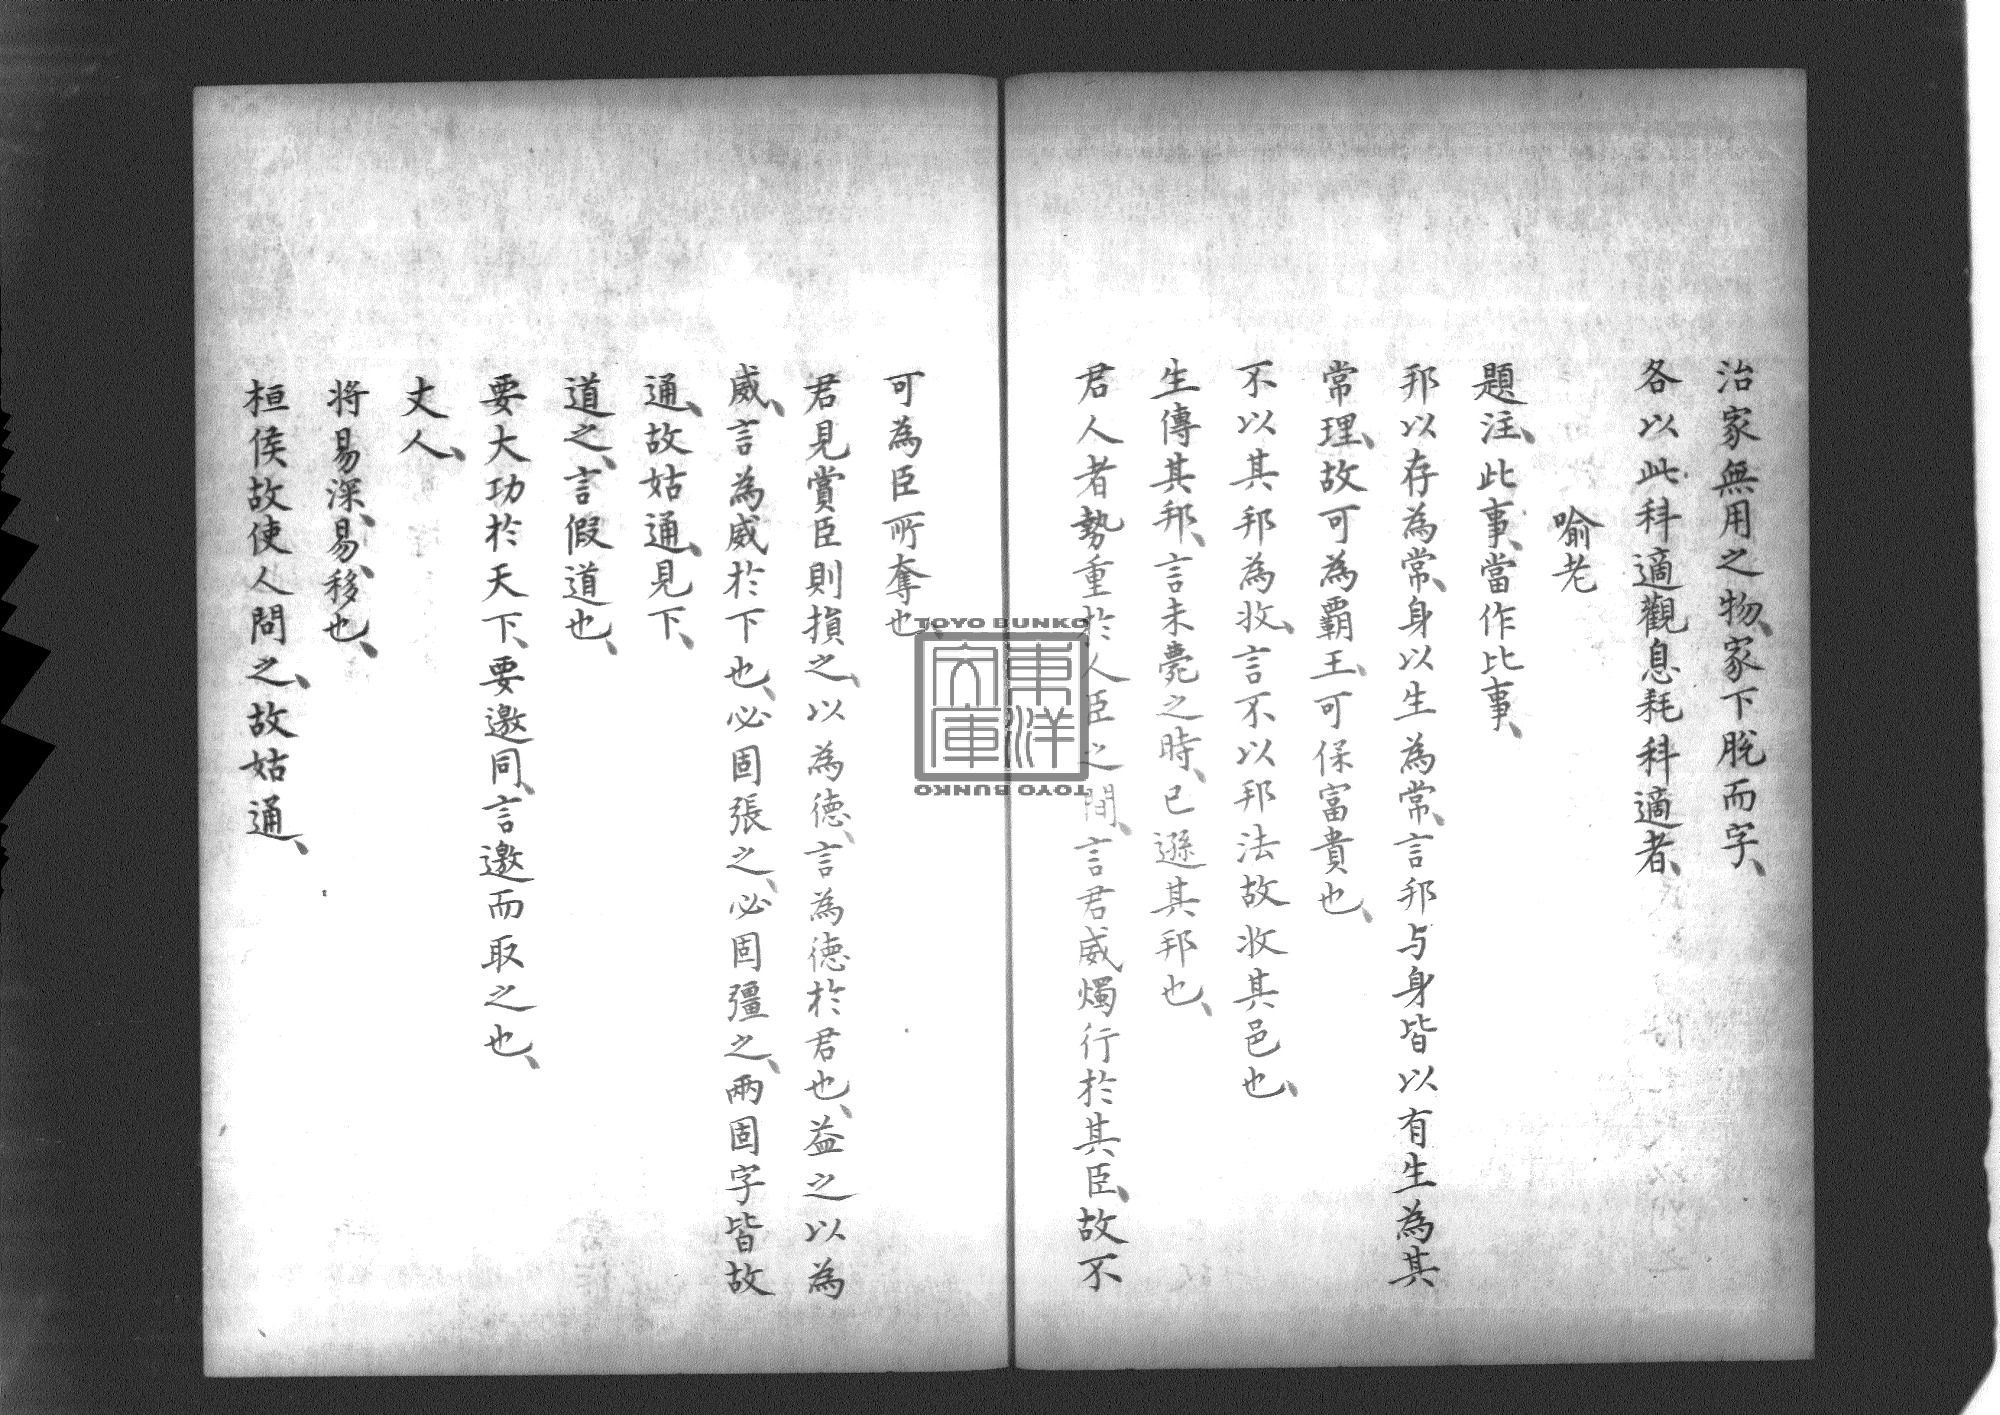 治家無用之物、家下脫而字、
各以此科適觀息耗科適者、
喻老
題注、此事、當作比事、
邦以存為常、身以生為常、言邦与身皆以有生為其
常理、故可為霸王、可保富貴也、
不以其邦為收、言不以邦法故收其邑也、
生傳其邦、言未薨之時、已遜其邦也、
君人者勢重於人臣之間、言君威燭行於其臣、故不
可為臣所奪也、
君見賞臣則損之、以為德、言為德於君也、益之以為
威、言為威於下也、必固張之、必固彊之、兩固字皆故
通、故姑通、見下、
道之、言假道也、
要大功於天下、要邀同、言邀而取之也、
丈人、
将易深、易、移也、
桓侯故使人問之、故姑通、
TOYO BUNKO
東洋文庫
TOYO BUNKO